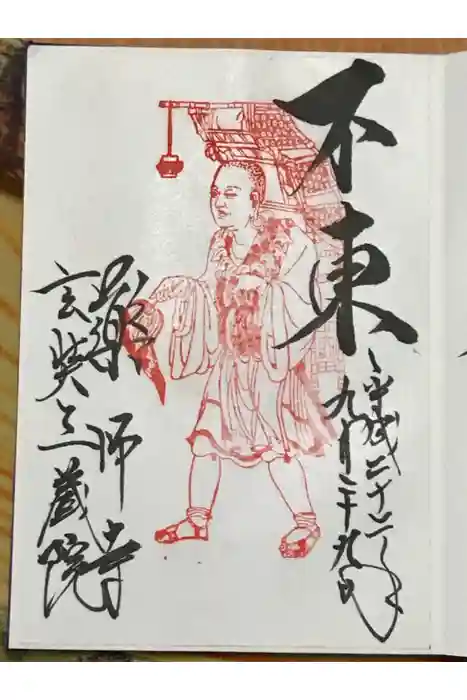 不東
平成二十六年
九月二十九日
藥師寺
玄奘三蔵院